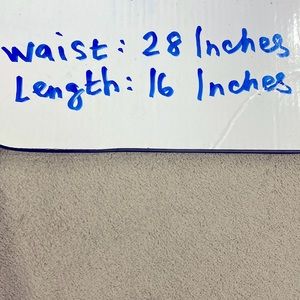 Waist: 28 Inches
Length: 16 Inches